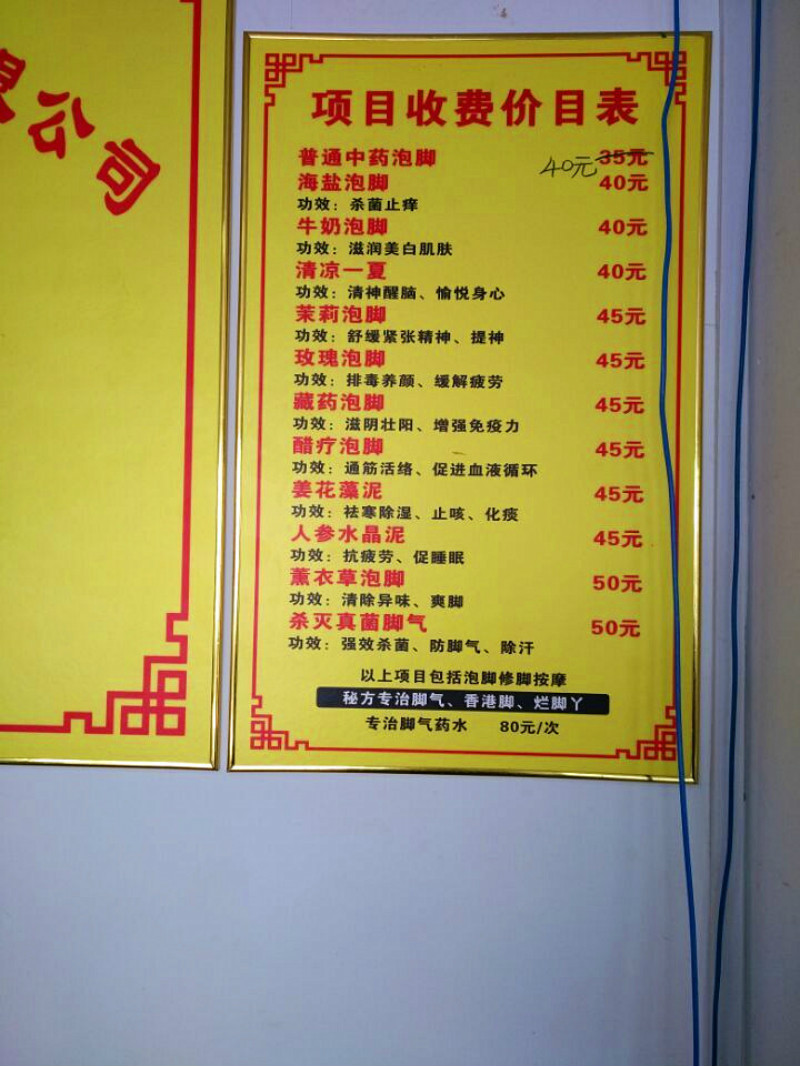 公司
项目收费价目表
普通中药泡脚 40元 35元
海盐泡脚 40元
功效：杀菌止痒
牛奶泡脚 40元
功效：滋润美白肌肤
清凉一夏 40元
功效：清神醒脑、愉悦身心
茉莉泡脚 45元
功效：舒缓紧张精神、提神
玫瑰泡脚 45元
功效：排毒养颜、缓解疲劳
藏药泡脚 45元
功效：滋阴壮阳、增强免疫力
醋疗泡脚 45元
功效：通筋活络、促进血液循环
姜花藻泥 45元
功效：祛寒除湿、止咳、化痰
人参水晶泥 45元
功效：抗疲劳、促睡眠
薰衣草泡脚 50元
功效：清除异味、爽脚
杀灭真菌脚气 50元
功效：强效杀菌、防脚气、除汗
以上项目包括泡脚修脚按摩
秘方专治脚气、香港脚、烂脚丫
专治脚气药水 80元/次